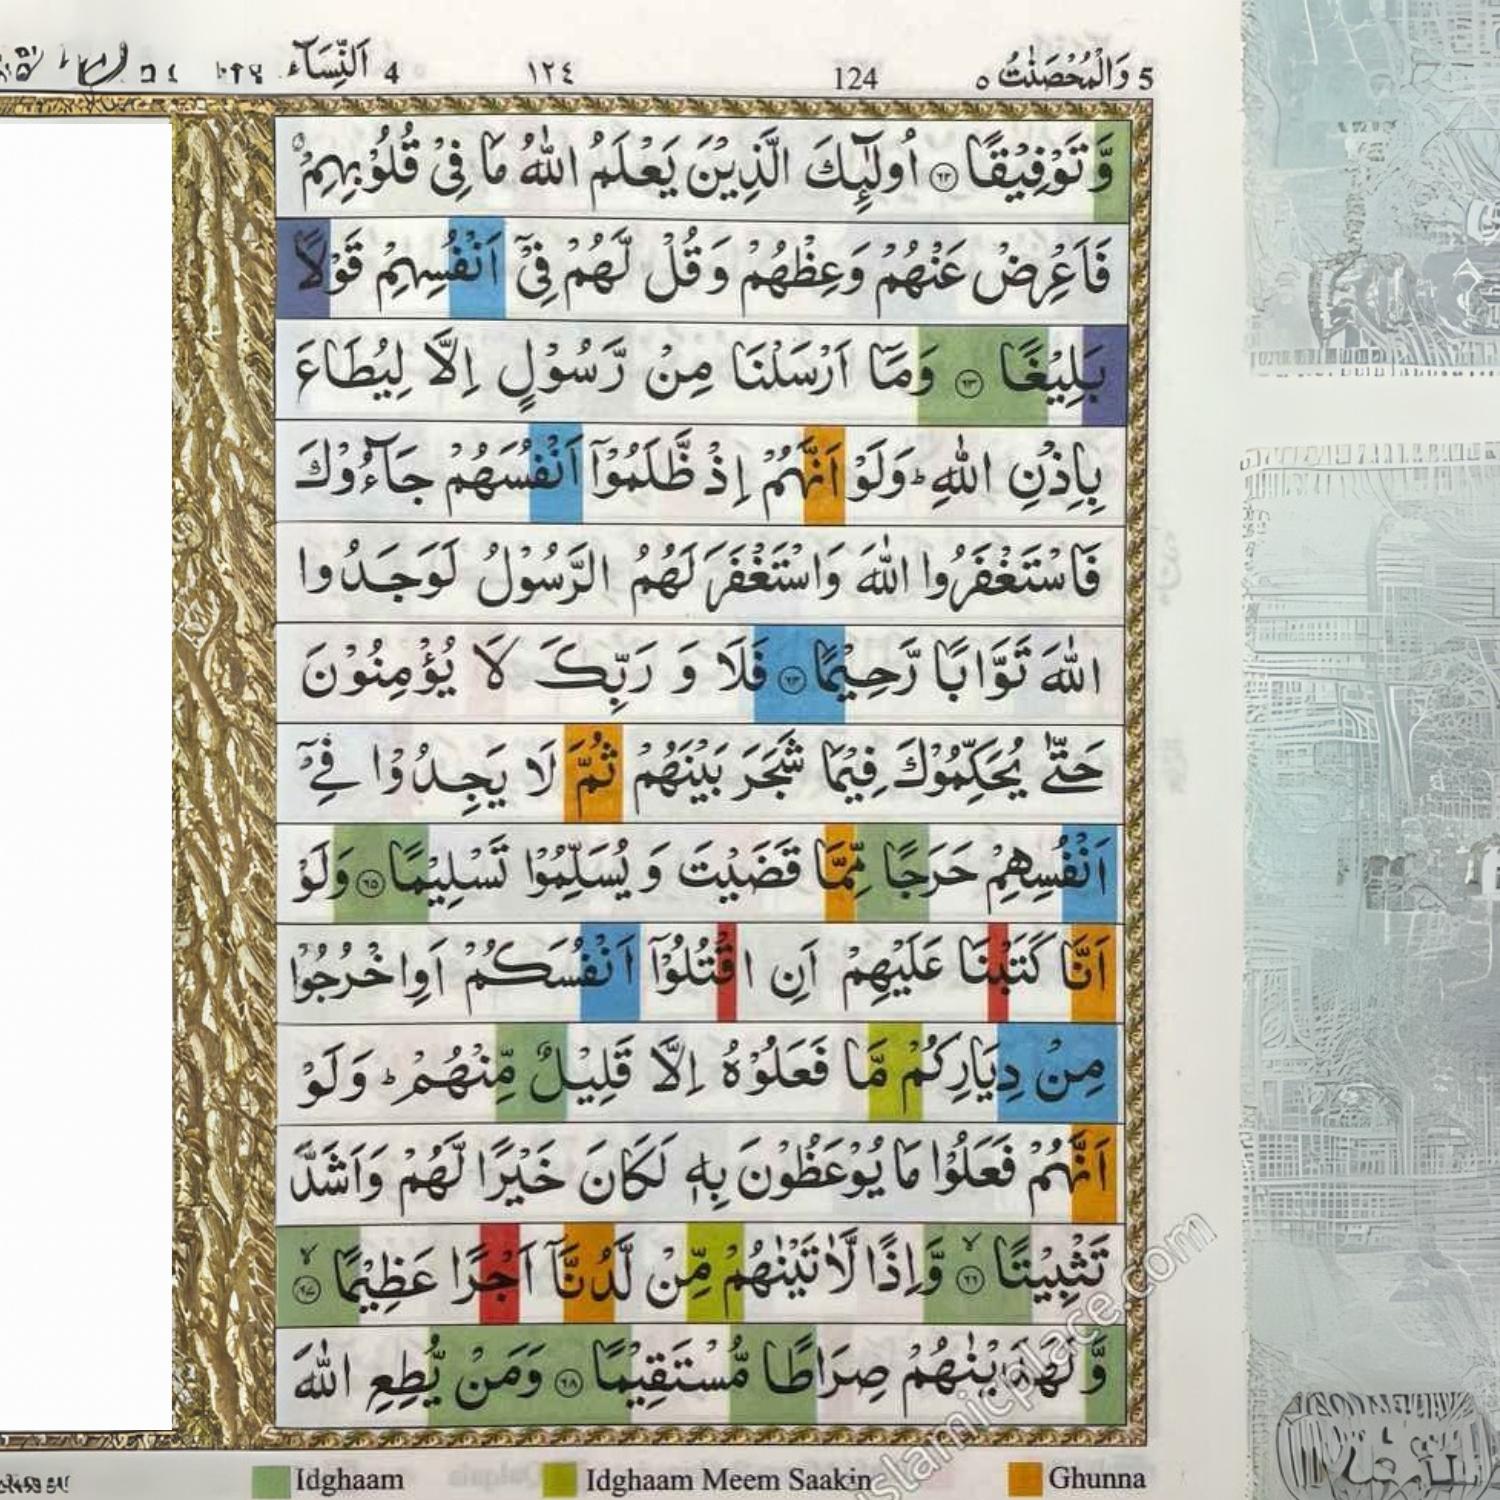 5 وَالْمُحْصَنٰتُ ٥ 124 ١٢٤ 4 اَلنِّسَآء
وَّ تَوْفِيْقًا ۝٦٢ اُولٰٓئِكَ الَّذِيْنَ يَعْلَمُ اللّٰهُ مَا فِيْ قُلُوْبِهِمْ ۥ
فَاَعْرِضْ عَنْهُمْ وَعِظْهُمْ وَقُلْ لَّهُمْ فِيْٓ اَنْفُسِهِمْ قَوْلًا
بَلِيْغًا ۝٦٣ وَمَآ اَرْسَلْنَا مِنْ رَّسُوْلٍ اِلَّا لِيُطَاعَ
بِاِذْنِ اللّٰهِ ؕ وَلَوْ اَنَّهُمْ اِذْ ظَّلَمُوْٓا اَنْفُسَهُمْ جَآءُوْكَ
فَاسْتَغْفَرُوا اللّٰهَ وَاسْتَغْفَرَ لَهُمُ الرَّسُوْلُ لَوَجَدُوا
اللّٰهَ تَوَّابًا رَّحِيْمًا ۝٦٤ فَلَا وَ رَبِّكَ لَا يُؤْمِنُوْنَ
حَتّٰى يُحَكِّمُوْكَ فِيْمَا شَجَرَ بَيْنَهُمْ ثُمَّ لَا يَجِدُوْا فِيْٓ
اَنْفُسِهِمْ حَرَجًا مِّمَّا قَضَيْتَ وَ يُسَلِّمُوْا تَسْلِيْمًا ۝٦٥ وَلَوْ
اَنَّا كَتَبْنَا عَلَيْهِمْ اَنِ اقْتُلُوْٓا اَنْفُسَكُمْ اَوِ اخْرُجُوْا
مِنْ دِيَارِكُمْ مَّا فَعَلُوْهُ اِلَّا قَلِيْلٌ مِّنْهُمْ ؕ وَلَوْ
اَنَّهُمْ فَعَلُوْا مَا يُوْعَظُوْنَ بِهٖ لَكَانَ خَيْرًا لَّهُمْ وَاَشَدَّ
تَثْبِيْتًا ۙ۝٦٦ وَّاِذًا لَّاٰتَيْنٰهُمْ مِّنْ لَّدُنَّآ اَجْرًا عَظِيْمًا ۙ۝٦٧
وَّ لَهَدَيْنٰهُمْ صِرَاطًا مُّسْتَقِيْمًا ۝٦٨ وَمَنْ يُّطِعِ اللّٰهَ
Idghaam Idghaam Meem Saakin Ghunna
islamicplace.com